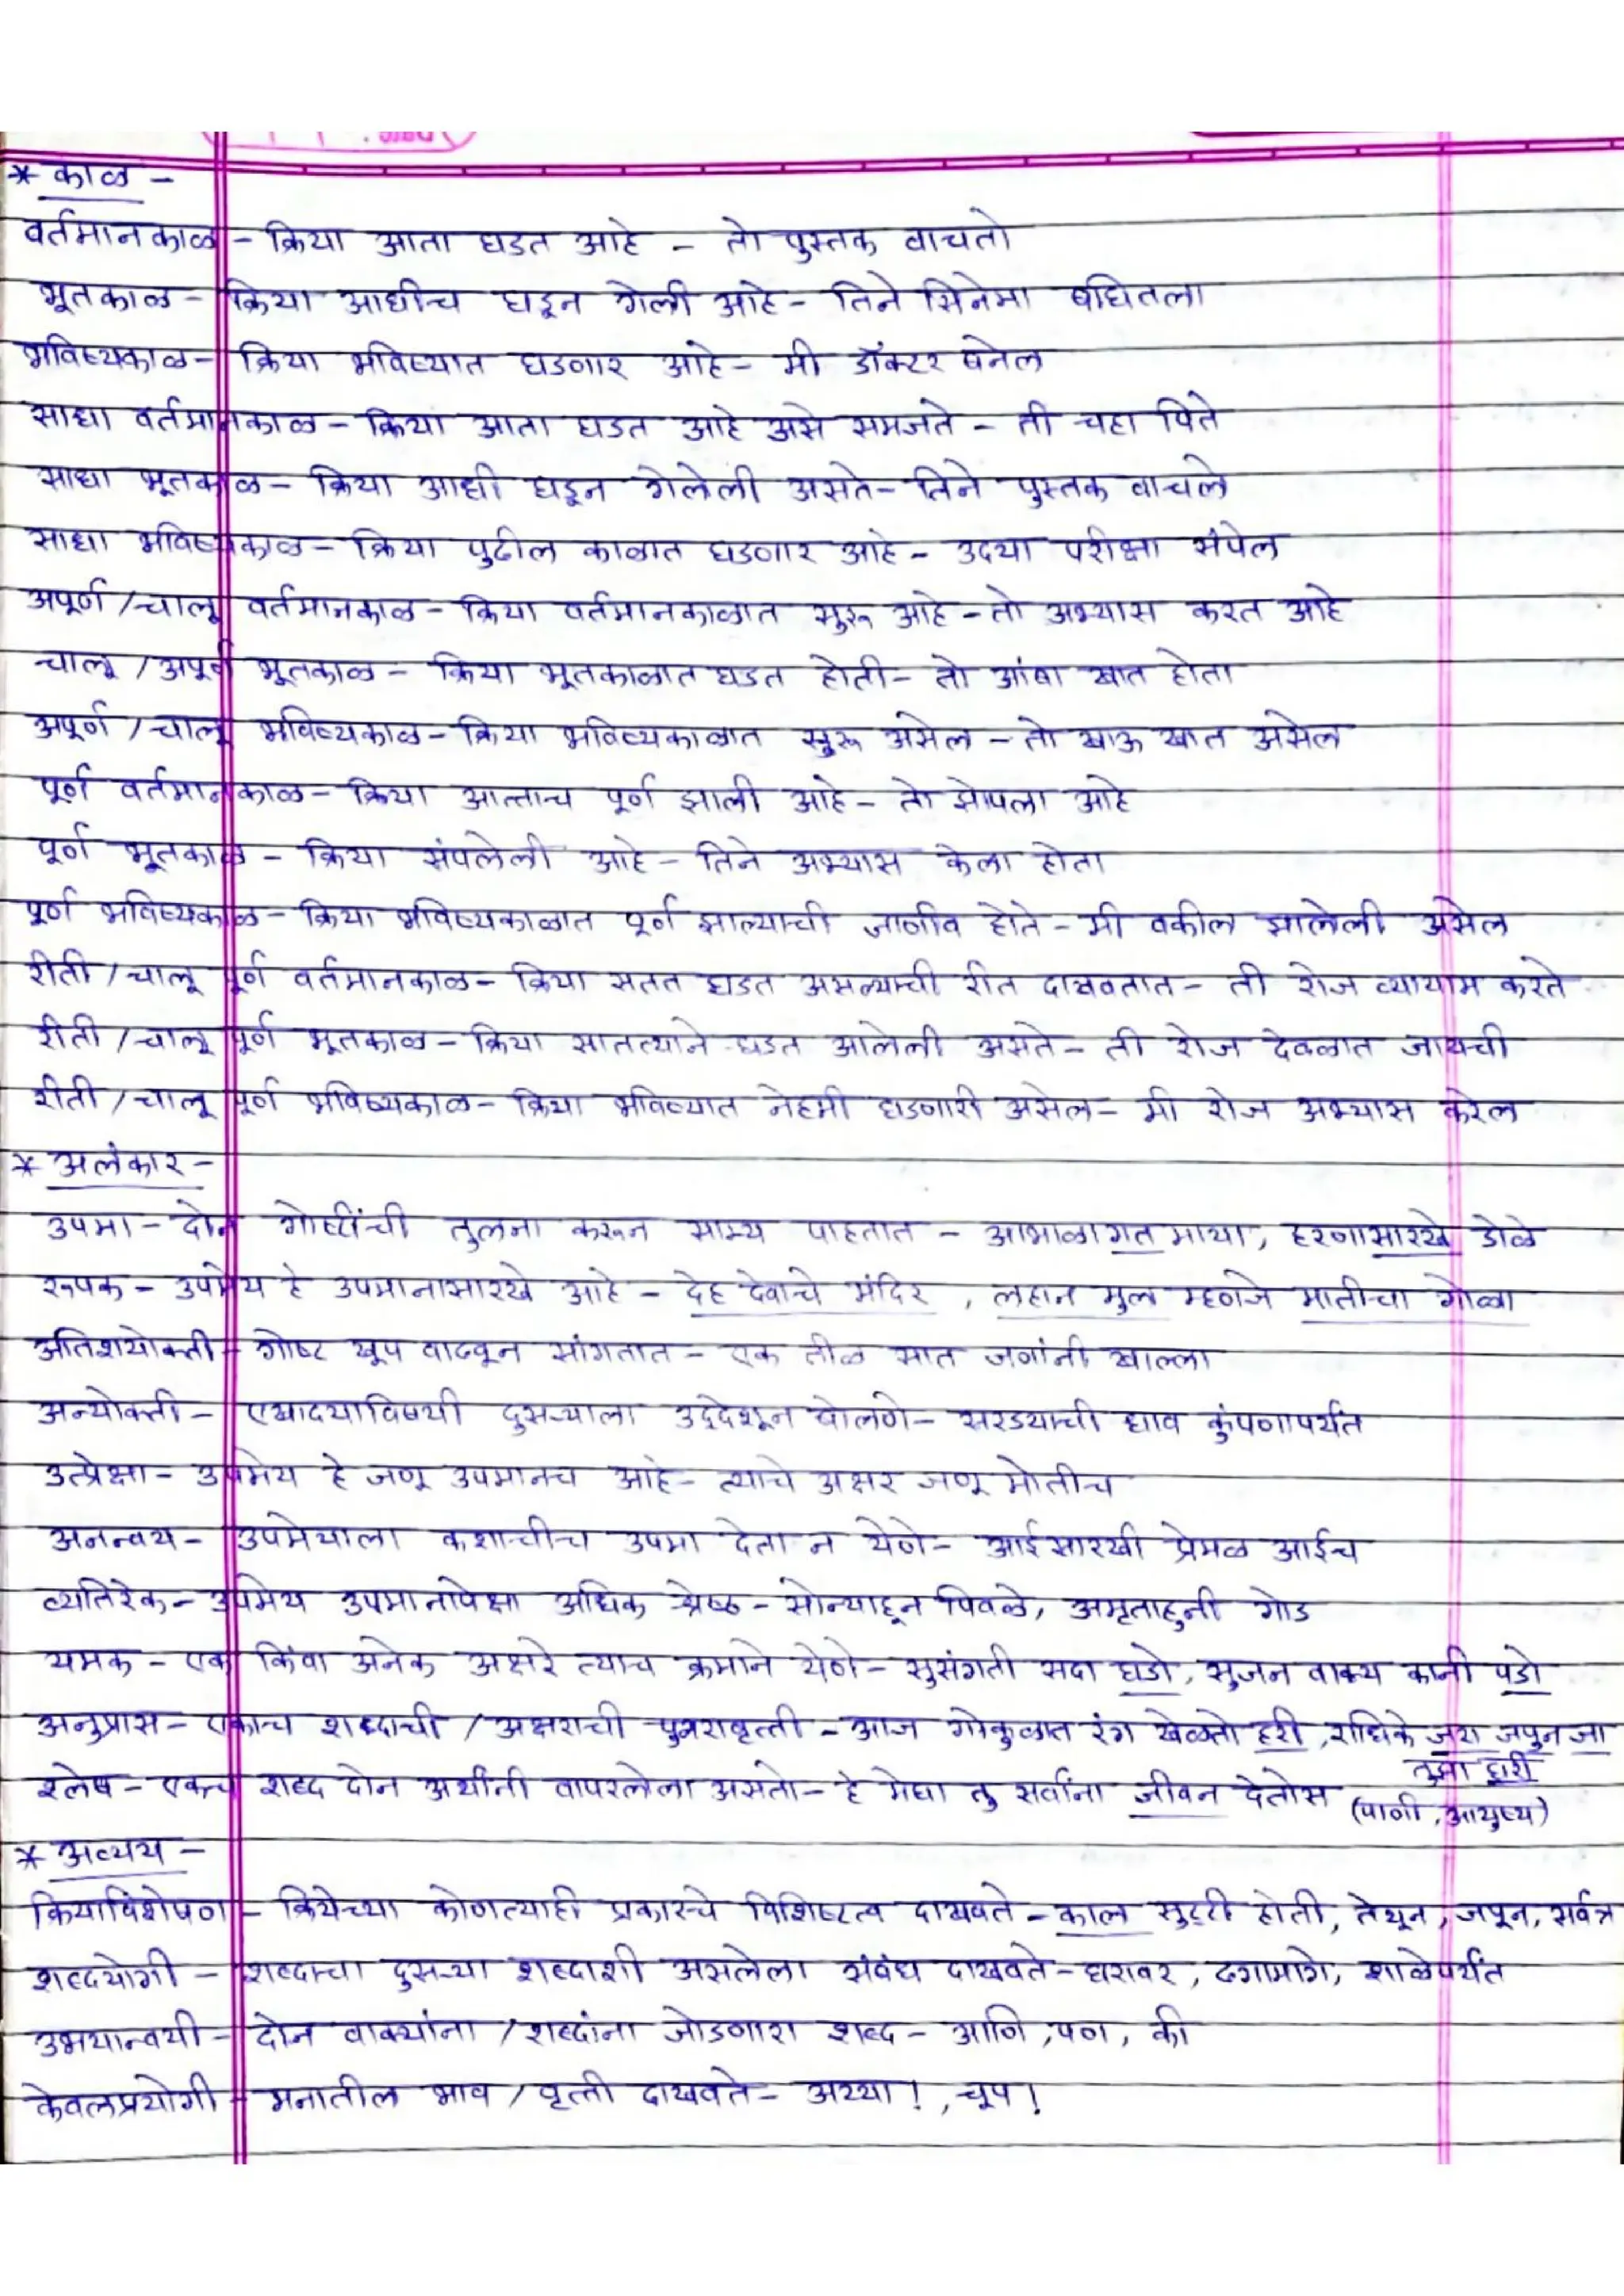 * काळ -
वर्तमानकाळ - क्रिया आता घडत आहे - तो पुस्तक वाचतो
भूतकाळ - क्रिया आधीच घडून गेली आहे - तिने सिनेमा बघितला
भविष्यकाळ - क्रिया भविष्यात घडणार आहे - मी डॉक्टर बनेल
साधा वर्तमानकाळ - क्रिया आता घडत आहे असे समजते - ती चहा पिते
साधा भूतकाळ - क्रिया आधी घडून गेलेली असते - तिने पुस्तक वाचले
साधा भविष्यकाळ - क्रिया पुढील काळात घडणार आहे - उदया परीक्षा संपेल
अपूर्ण / चालू वर्तमानकाळ - क्रिया वर्तमानकाळात सुरू आहे - तो अभ्यास करत आहे
चालू / अपूर्ण भूतकाळ - क्रिया भूतकाळात घडत होती - तो आंबा खात होता
अपूर्ण / चालू भविष्यकाळ - क्रिया भविष्यकाळात सुरू असेल - तो खाऊ खात असेल
पूर्ण वर्तमानकाळ - क्रिया आत्ताच पूर्ण झाली आहे - तो झोपला आहे
पूर्ण भूतकाळ - क्रिया संपलेली आहे - तिने अभ्यास केला होता
पूर्ण भविष्यकाळ - क्रिया भविष्यकाळात पूर्ण झाल्याची जाणीव होते - मी वकील झालेली असेल
रीती / चालू पूर्ण वर्तमानकाळ - क्रिया सतत घडत असल्याची रीत दाखवतात - ती रोज व्यायाम करते
रीती / चालू पूर्ण भूतकाळ - क्रिया सातत्याने घडत आलेली असते - ती रोज देवळात जायची
रीती / चालू पूर्ण भविष्यकाळ - क्रिया भविष्यात नेहमी घडणारी असेल - मी रोज अभ्यास करेल
* अलंकार -
उपमा - दोन गोष्टींची तुलना करून साम्य पाहतात - आभाळागत माया, हरणासारखे डोळे
रूपक - उपमेय हे उपमानासारखे आहे - देह देवाचे मंदिर, लहान मुल म्हणजे मातीचा गोळा
अतिशयोक्ती - गोष्ट खूप वाढवून सांगतात - एक तीळ सात जणांनी खाल्ला
अन्योक्ती - एखादयाविषयी दुसऱ्याला उद्देशून बोलणे - सरडयाची धाव कुंपणापर्यंत
उत्प्रेक्षा - उपमेय हे जणू उपमानच आहे - त्याचे अक्षर जणू मोतीच
अनन्वय - उपमेयाला कशाचीच उपमा देता न येणे - आईसारखी प्रेमळ आईच
व्यतिरेक - उपमेय उपमानापेक्षा अधिक श्रेष्ठ - सोन्याहून पिवळे, अमृताहुनी गोड
यमक - एक किंवा अनेक अक्षरे त्याच क्रमाने येणे - सुसंगती सदा घडो, सुजन वाक्य कानी पडो
अनुप्रास - एकाच शब्दाची / अक्षराची पुनरावृत्ती - आज गोकुळात रंग खेळतो हरी, राधिके जरा जपुन जा
तुझा घरी
श्लेष - एकच शब्द दोन अर्थांनी वापरलेला असतो - हे मेघा तु सर्वांना जीवन देतोस (पाणी, आयुष्य)
* अव्यय -
क्रियाविशेषण - क्रियेच्या कोणत्याही प्रकारचे विशिष्टत्व दाखवते - काल सुट्टी होती, तेथून, जपून, सर्वत्र
शब्दयोगी - शब्दाचा दुसऱ्या शब्दाशी असलेला संबंध दाखवते - घरावर, ढगामागे, शाळेपर्यंत
उभयान्वयी - दोन वाक्यांना / शब्दांना जोडणारा शब्द - आणि, पण, की
केवलप्रयोगी - मनातील भाव / वृत्ती दाखवते - अय्या!, चूप!